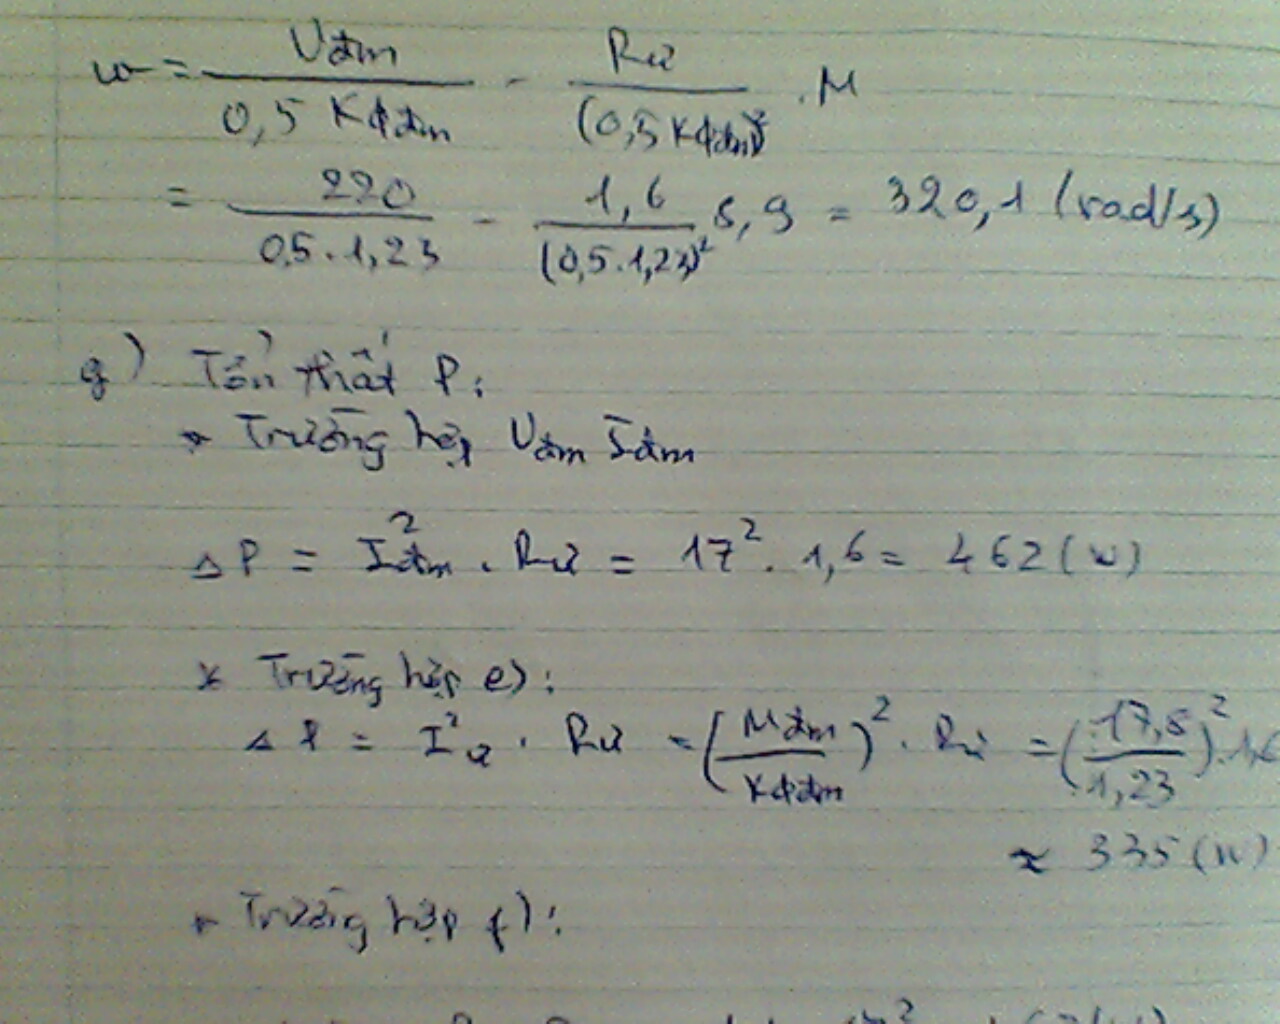 ω = Uđm / 0,5 Kφđm - Rư / (0,5 Kφđm)² . M
= 220 / 0,5 . 1,23 - 1,6 / (0,5 . 1,23)² 8,9 = 320,1 (rad/s)
g) Tổn thất P:
* Trường hợp Uđm Iđm
ΔP = I²đm . Rư = 17² . 1,6 = 462 (W)
* Trường hợp e):
ΔP = I²ư . Rư = (Mđm / Kφđm)² . Rư = (17,8 / 1,23)² . 1,6
≈ 335 (W)
* Trường hợp f):